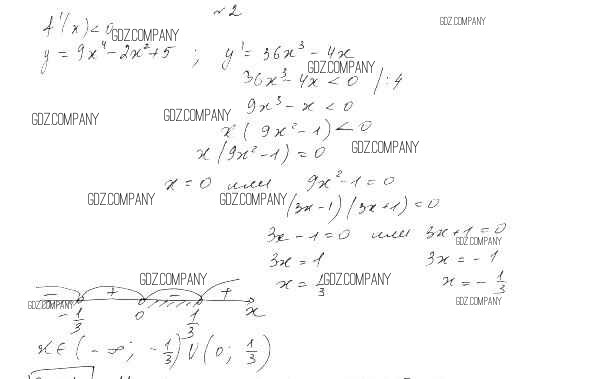 №2
f'(x)<0
GDZ.COMPANY
GDZ.COMPANY
y = 9x⁴ - 2x² + 5 ; y' = 36x³ - 4x
GDZ.COMPANY
36x³ - 4x < 0 /:4
9x³ - x < 0
GDZ.COMPANY GDZ.COMPANY
x (9x² - 1) < 0
x (9x² - 1) = 0
GDZ.COMPANY
x = 0 или 9x² - 1 = 0
GDZ.COMPANY GDZ.COMPANY
(3x - 1) (3x + 1) = 0
3x - 1 = 0 или 3x + 1 = 0
GDZ.COMPANY
3x = 1 3x = - 1
GDZ.COMPANY GDZ.COMPANY
x = 1/3 x = - 1/3
GDZ.COMPANY
- + - +
GDZ.COMPANY
- 1/3 0 1/3 x
x ∈ (- ∞; - 1/3) U (0; 1/3)